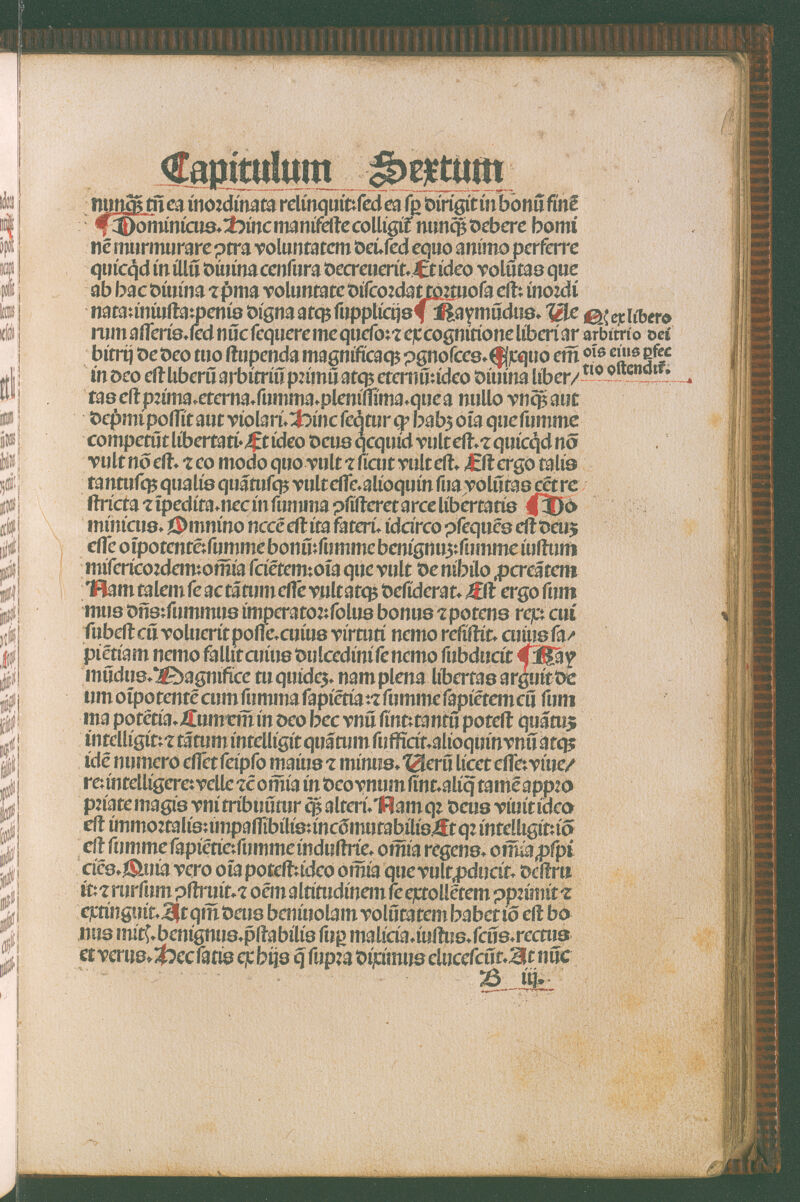 Capitulum Sextum
nunq̃ꝫ tñ ea inordinata relinquit: sed ea sꝑ dirigit in bonũ finẽ
¶ Dominicus. Hinc manifeste colligit̃ nunq̃ꝫ debere homi
nẽ murmurare ꝯtra voluntatem dei. sed equo animo perferre
quicq̇d in illũ diuina censura decreuerit. Et ideo volũtas que
ab hac diuina ⁊ p̃ma voluntate discordat tortuosa est: inordi
nata: iniusta: penis digna atqꝫ supplicijs ¶ Raymũdus. Ve
rum asseris. sed nũc sequere me queso: ⁊ ex cognitione liberi ar
bitrij de deo tuo stupenda magnificaqꝫ ꝯgnosces. Exquo em̃
in deo est liberũ arbitriũ primũ atqꝫ eternũ: ideo diuina liber/
tas est prima. eterna. summa. plenissima. que a nullo vnq̃ꝫ aut
dep̃mi possit aut violari. Hinc seq̇tur ꝙ habꝫ oĩa que summe
competũt libertati. Et ideo deus q̇cquid vult est. ⁊ quicq̇d nõ
vult nõ est. ⁊ eo modo quo vult ⁊ sicut vult est. Est ergo talis
tantusqꝫ qualis quãtusqꝫ vult esse. alioquin sua volũtas eẽt re
stricta ⁊ ĩpedita. nec in summa ꝯsisteret arce libertatis ¶ Do
minicus. Omnino nccẽ est ita fateri. idcirco ꝯsequẽs est deuꝫ
esse oĩpotentẽ: summe bonũ: summe benignuꝫ: summe iustum
misericordem: om̃ia sciẽtem: oĩa que vult de nihilo ꝓcreãtem
Nam talem se ac tãtum esse vult atqꝫ desiderat. Est ergo sum
mus dñs: summus imperator: solus bonus ⁊ potens rex: cui
subest cũ voluerit posse. cuius virtuti nemo resistit. cuius sa/
piẽtiam nemo fallit cuius dulcedini se nemo subducit ¶ Ray
mũdus. Magnifice tu quideꝫ. nam plena libertas arguit de
um oĩpotentẽ cum summa sapiẽtia: ⁊ summe sapiẽtem cũ sum
ma potẽtia. Cum em̃ in deo hec vnũ sint: tantũ potest quãtuꝫ
intelligit: ⁊ tãtum intelligit quãtum sufficit. alioquin vnũ atqꝫ
idẽ numero esset seipso maius ⁊ minus. Verũ licet esse: viue/
re: intelligere: velle ⁊c̃ om̃ia in deo vnum sint. aliq̃ tamẽ appro
priate magis vni tribuũtur q̃ꝫ alteri. Nam qꝛ deus viuit ideo
est immortalis: impassibilis: incõmutabilis Et qꝛ intelligit: iõ
est summe sapiẽtie: summe industrie. om̃ia regens. om̃ia ꝓspi
ciẽs. Quia vero oĩa potest: ideo om̃ia que vult ꝓducit. destru
it: ⁊ rursum ꝯstruit. ⁊ oẽm altitudinem se extollẽtem ꝯprimit ⁊
extinguit. At qm̃ deus beniuolam volũtatem habet iõ est bo
nus mitꝭ. benignus. p̃stabilis suꝑ malicia. iustus. scũs. rectus
et verus. Hec satis ex hijs q̃ supra diximus elucescũt. At nũc
B iij.
Qꝛ ex libero
arbitrio dei
oĩs eius ꝑfec
tio ostendit̃.